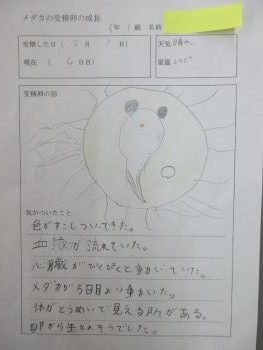 メダカの受精卵の成長
5年 1組 名前
受精した日 ( 6月 1日 )
天気 晴れ
現在 ( 6日目 )
室温
受精卵の図
気がついたこと
色がすこしついてきた。
血液が流れていた。
心臓がぴくぴくと動いていた。
メダカが5日目より動いた。
体がとうめいで見える所がある。
卵から生まれそうでした。